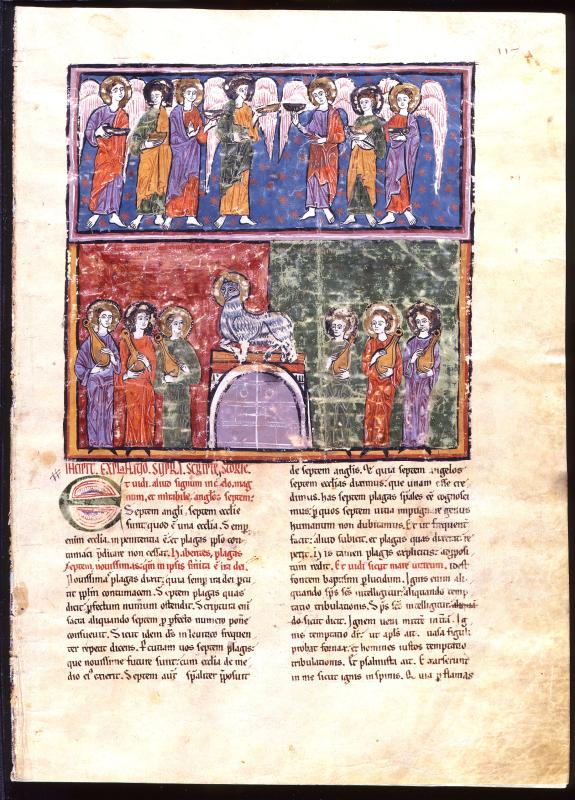 INCIPIT EXPLANATIO SUPRA SCRIPTE STORIE
Et uidi aliud signum in celo mag
num, et mirabile, angelos septem
Septem angli, septem ecclie
sunt quod ē una ecclia. S emp
enim ecclia in penitentia ē et plagas pplo con
tumaci p dicare non cessat. H abentes plagas
septem nouissimas qm in ipsis finita ē ira dei.
N ouissimas plagas dixit, quia semp ira dei pcu
tit pplm contumacem. S eptem plagas quas
dicit pfectum numum ostendit. S criptura enī
sacra aliquando septem p pfecto numero ponē
consueuit. S icut idem ds in leuitico frequen
ter repetit dicens. P cutiam uos septem plagis
que nouissime future sunt cum ecclia de me
dio ei exierit. S eptem aut spaliter pposuit
de septem anglis. Et quia septem angelos
septem ecclias diximus que unam esse cre
dimus, has septem plagas spales ēē cognosci
mus p quos septem uitia impugnare genus
humanum non dubitamus. Et ut frequent
facit, aliud subicit, et plagas quas dixerat re
petit.
tum redit. Et uidi sicut mare uitreum, id est
fontem baptismi p lucidum. I gnis enim ali
quando sps scs intelligitur aliquando temp
tatio tribulationis. S ps scs intelligitur
do sicut dicit. I gnem ueni mittere in trā. I g
nis temptatio dr ut apls ait. uasa figuli
probat fornax, et homines iustos temptatio
tribulationis. Et psalmista ait. E xarserunt
in me sicut ignis in spinis. Q uia p flamas